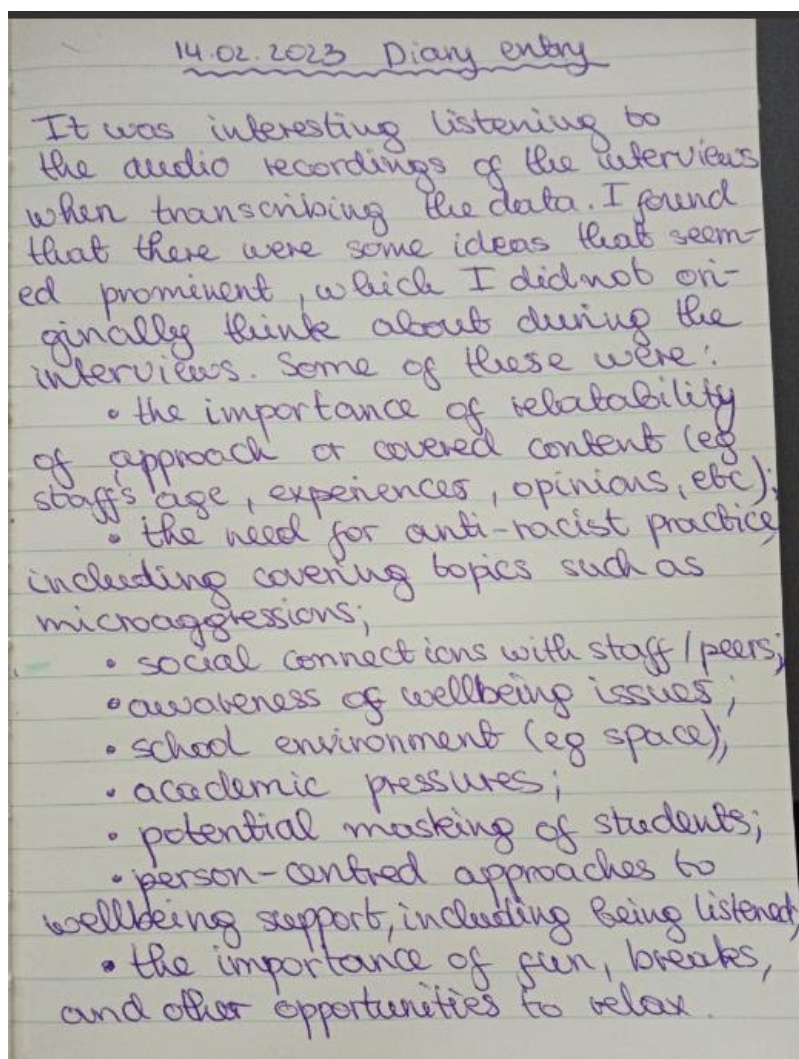 14.02.2023 Diary entry
It was interesting listening to
the audio recordings of the interviews
when transcribing the data. I found
that there were some ideas that seem-
ed prominent, which I did not ori-
ginally think about during the
interviews. Some of these were:
• the importance of relatability
of approach or covered content (eg
staff's age, experiences, opinions, etc);
• the need for anti-racist practice,
including covering topics such as
microaggressions;
• social connections with staff/peers;
• awareness of wellbeing issues;
• school environment (eg space);
• academic pressures;
• potential masking of students;
• person-centred approaches to
wellbeing support, including being listened;
• the importance of fun, breaks,
and other opportunities to relax.